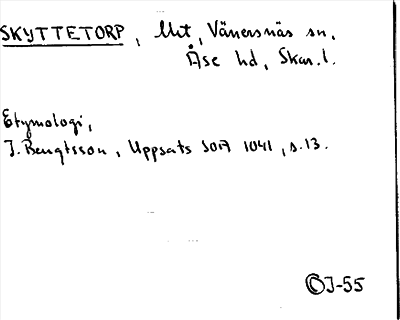 SKYTTETORP, Utt, Vänersnäs sn,
Åse hd, Skar.l.
Etymologi,
J. Bengtsson, Uppsats SOÄ 1041, s.13.
OJ-55